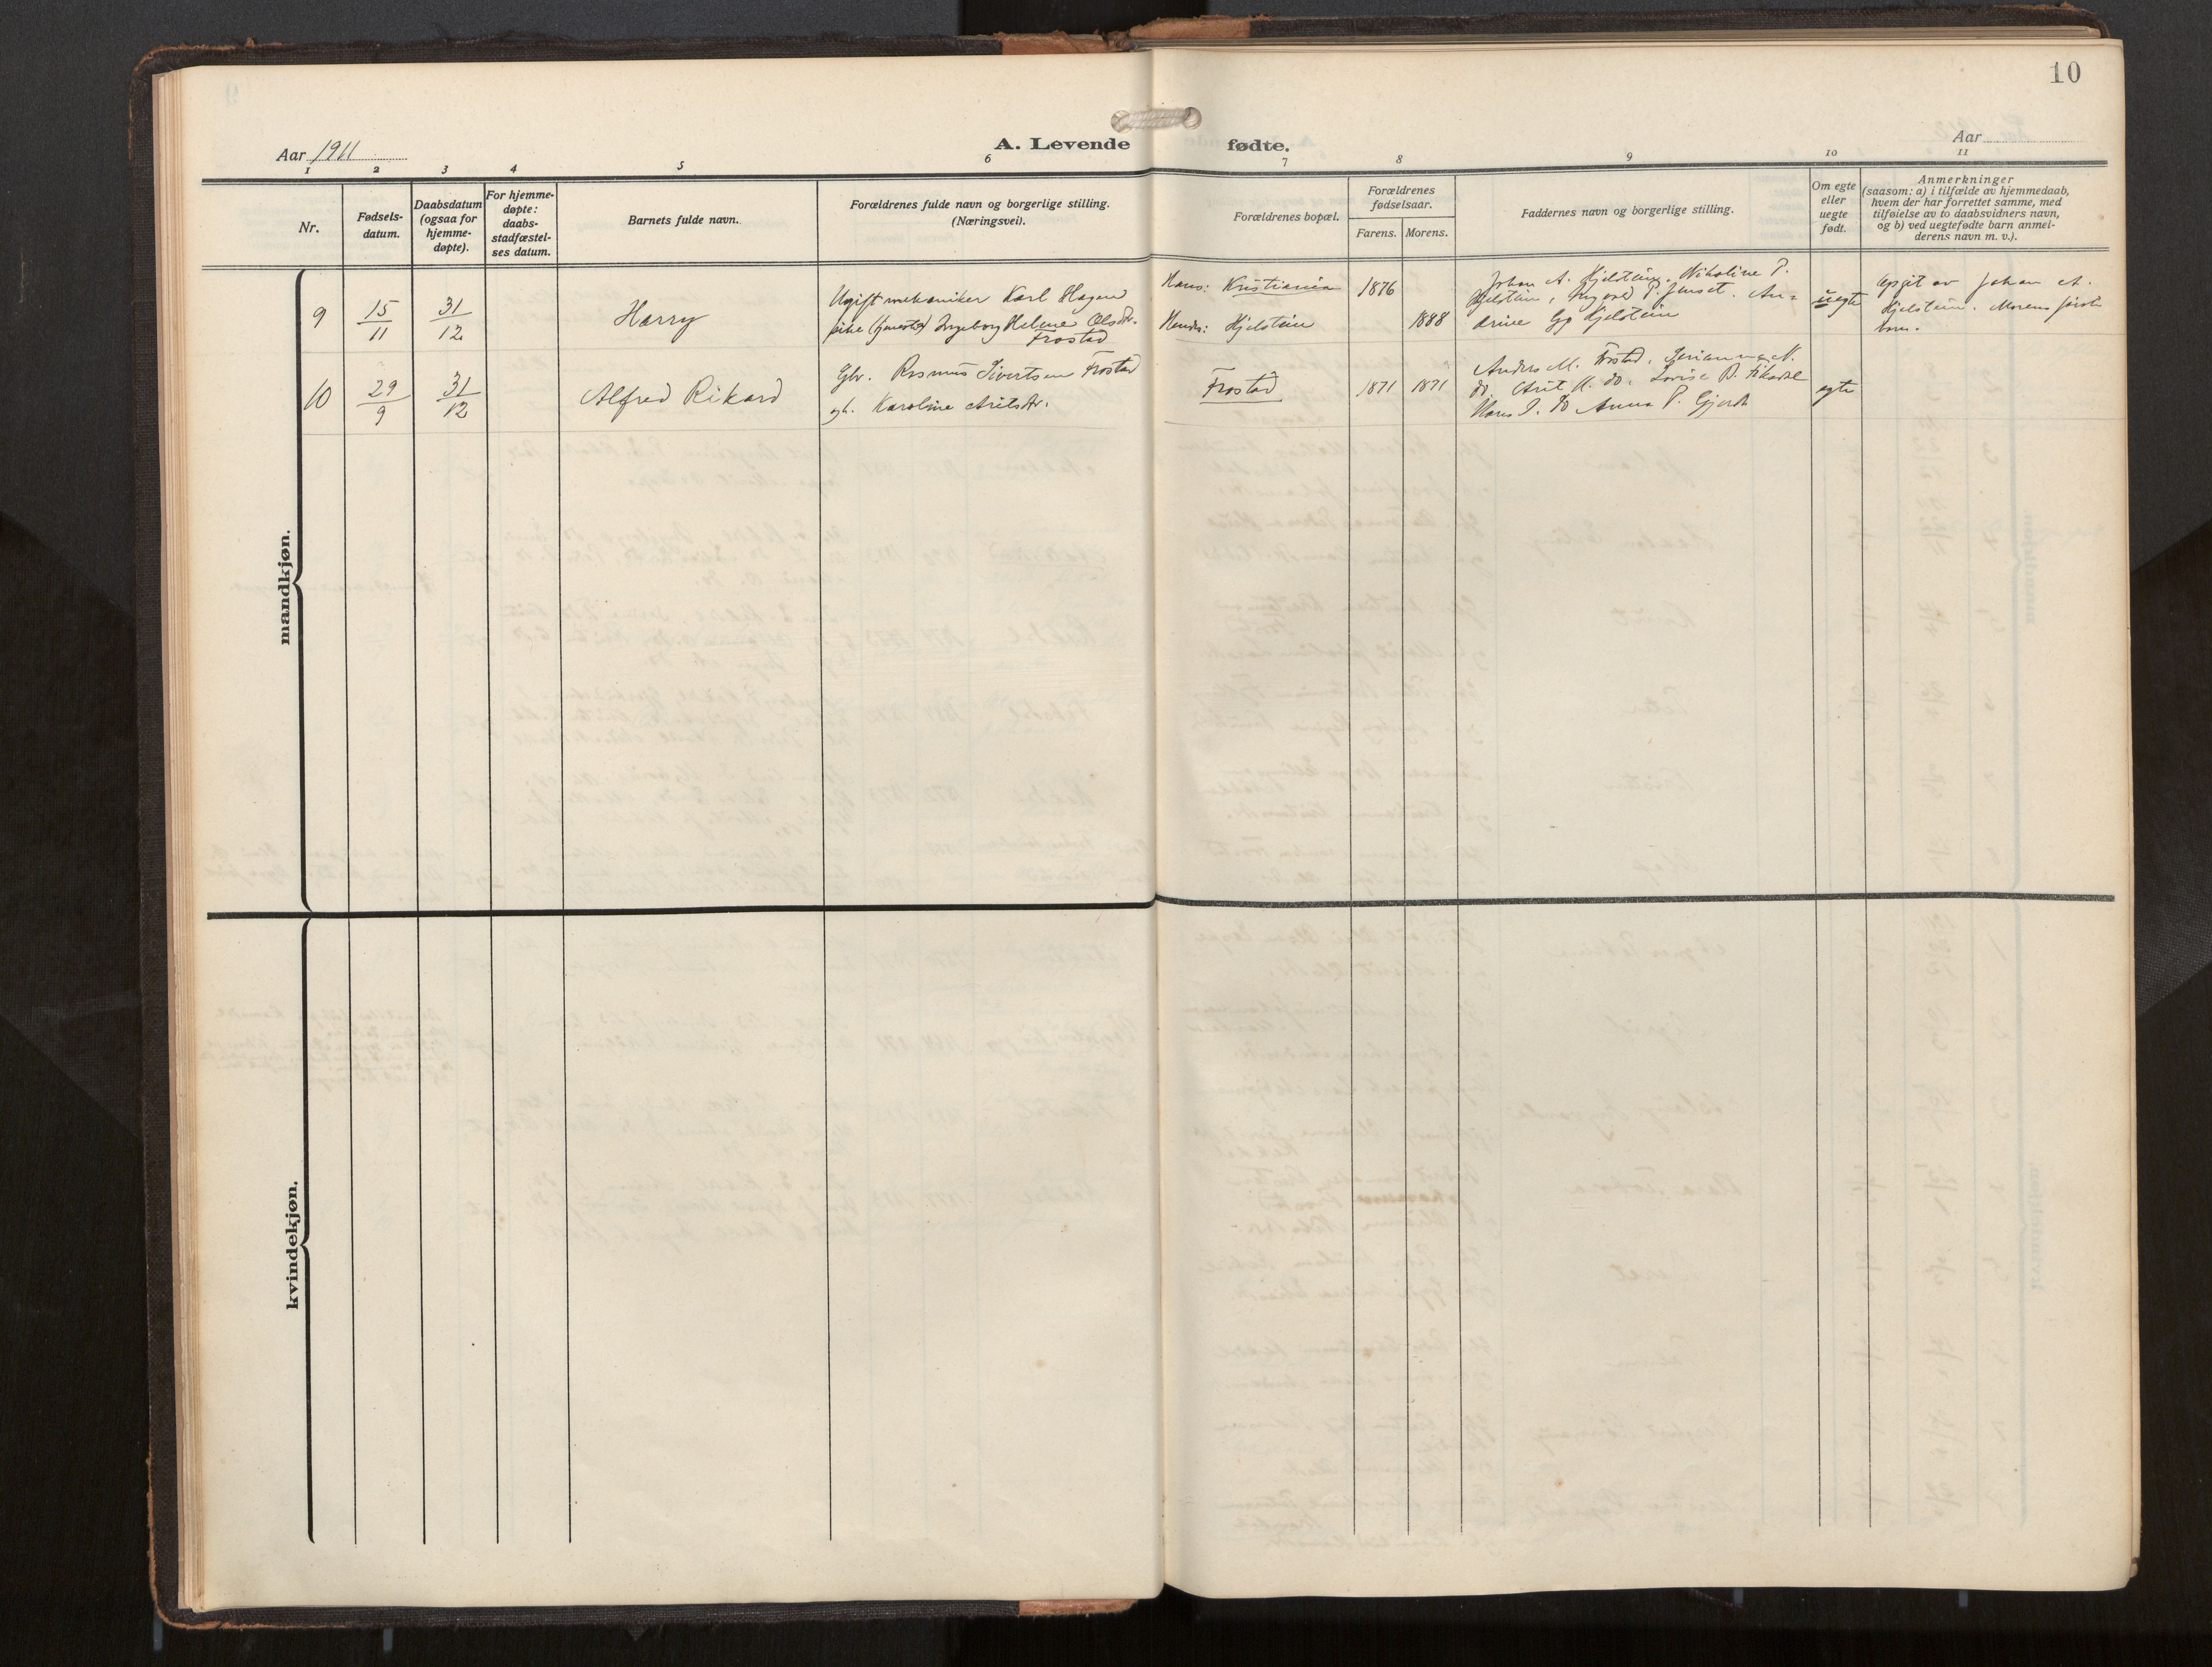 10
Aar 1911
A. Levende fødte.
Aar
1 2 3 4 5 6 7 8 9 10 11
Nr.
Fødsels-
datum.
Daabsdatum
(ogsaa for
hjemme-
døpte).
For hjemme-
døpte:
daabs-
stadfæstel-
ses datum.
Barnets fulde navn.
Forældrenes fulde navn og borgerlige stilling.
(Næringsvei).
Forældrenes bopæl.
Forældrenes
fødselsaar.
Farens. Morens.
Faddernes navn og borgerlige stilling.
Om egte
eller
uegte
født.
Anmerkninger
(saasom: a) i tilfælde av hjemmedaab,
hvem der har forrettet samme, med
tilføielse av to daabsvidners navn,
og b) ved uegtefødte barn anmel-
derens navn m. v.).
mandkjøn.
9
15/11
31/12
Harry
Ugift mekaniker Karl Hagen
pike (tjeneste) Ingeborg Helene Olsdtr.
Frostad
Hans: Kristiania
Hendes: Hjelstein
1876
1888
Johan A. Hjelstein, Nikoline P.
Hjelstein, P. Jenset. An-
drine Hjelstein
uegte
Opgit av Johan A.
Hjelstein. Morens første
barn.
10
29/9
31/12
Alfred Rikard
Gbr. Rasmus Sivertsen Frostad
gh. Karoline
Frostad
1871
1871
Anders M. Frostad, N.
do, do, Lovise B.
Hans I. do Anna P. Gjerde
egte
kvindekjøn.